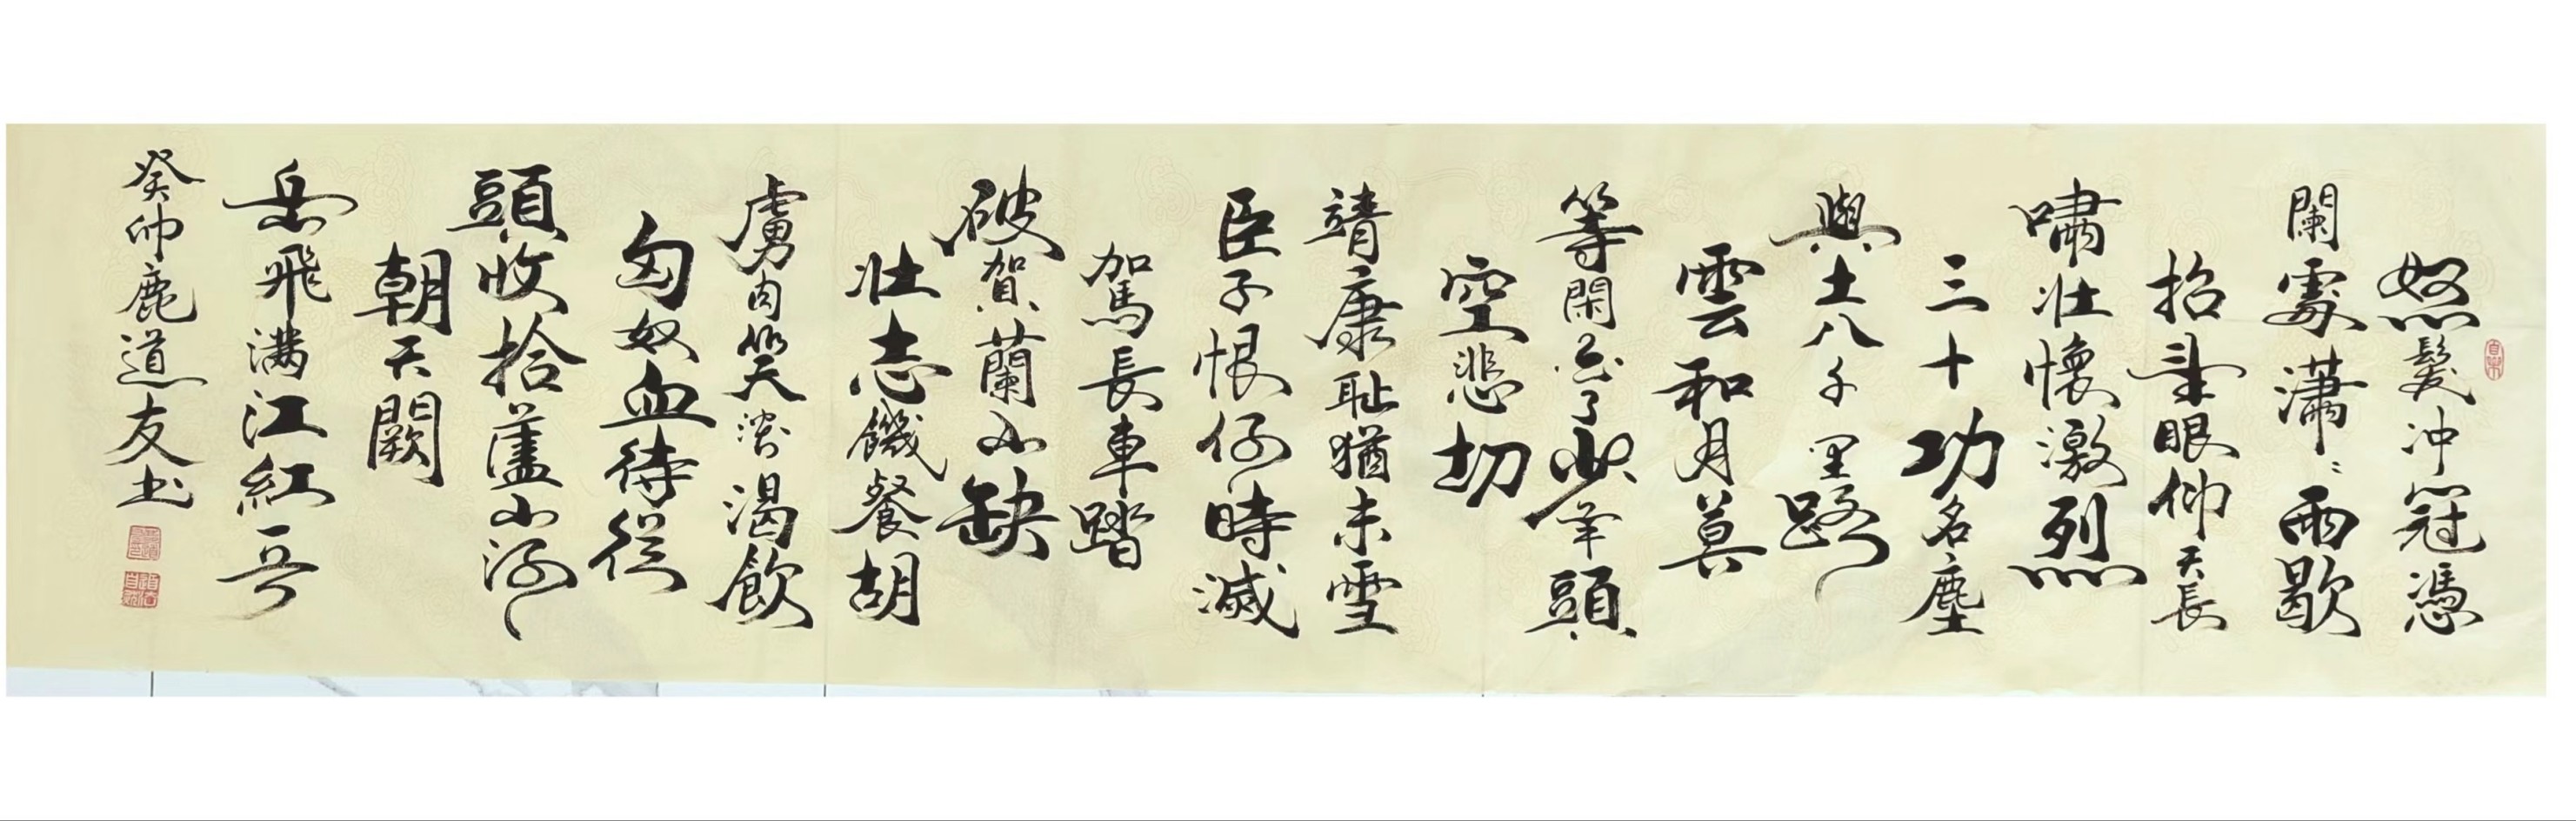 怒髮冲冠憑
闌處瀟〻雨歇
招望眼仰天長
嘯壯懷激烈
三十功名塵
與土八千里路
雲和月莫
等閑白了少年頭
空悲切
靖康耻猶未雪
臣子恨何時滅
駕長車踏
破賀蘭山缺
壯志饑餐胡
虜肉笑談渴飲
匈奴血待從
頭收拾舊山河
朝天闕
岳飛满江紅一首
癸卯鹿道友书